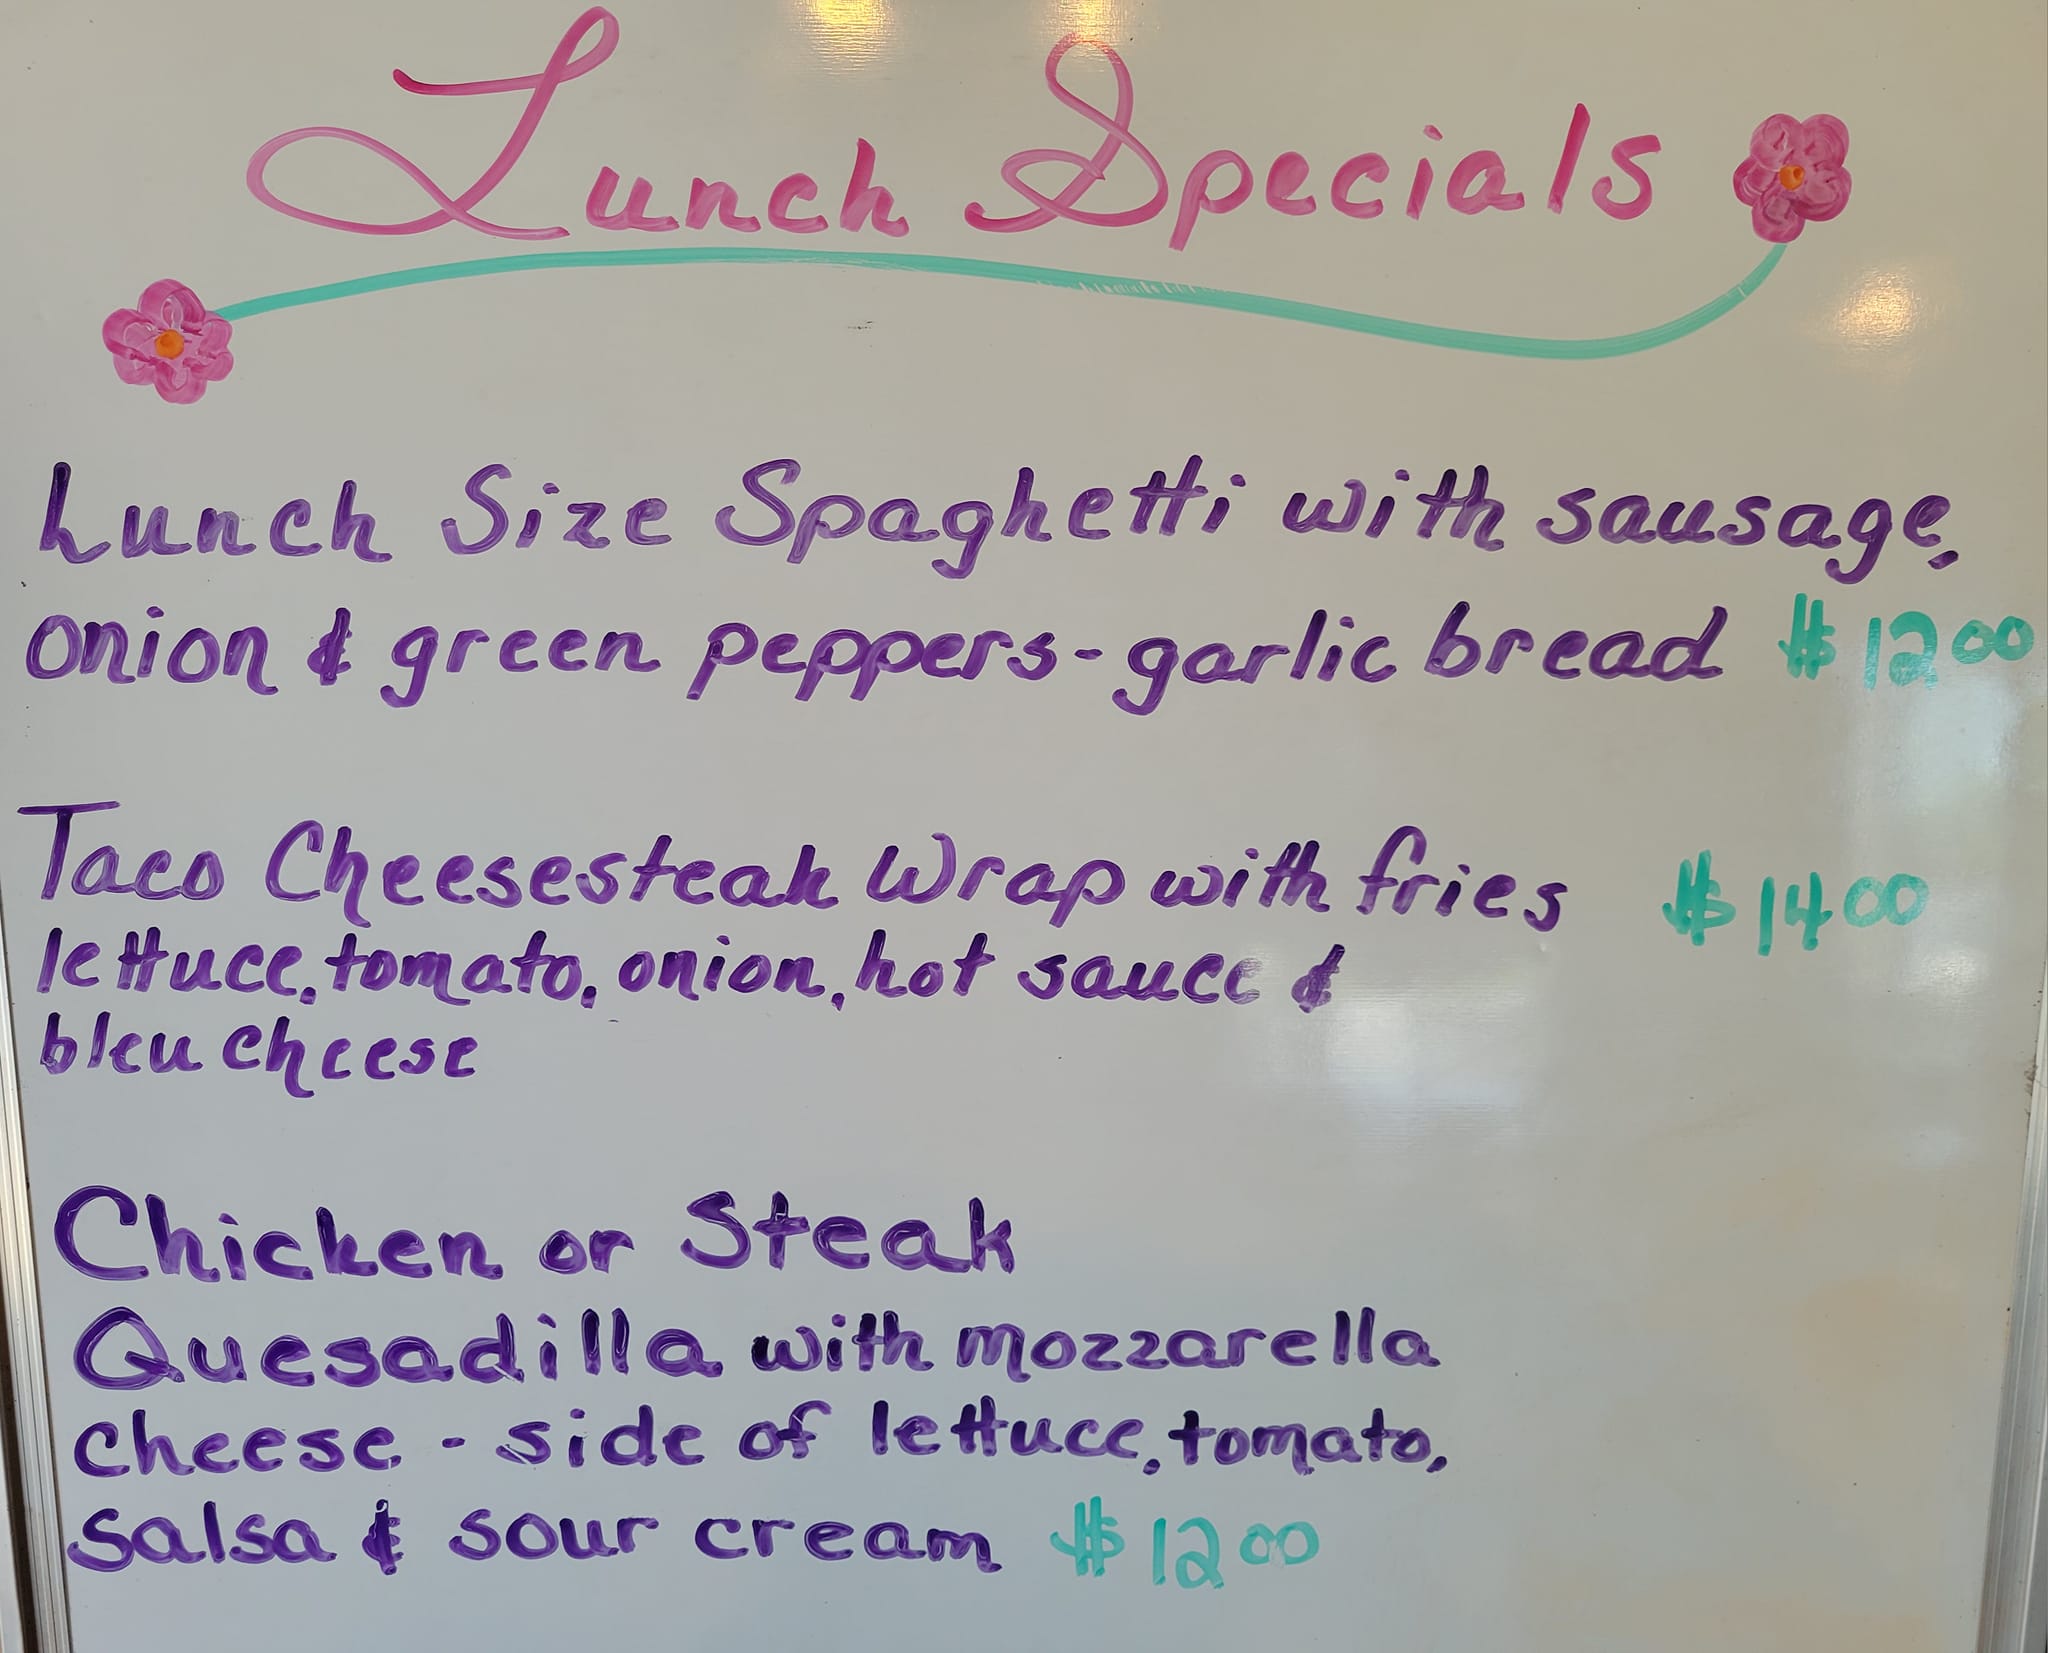 Lunch Specials
Lunch Size Spaghetti with sausage,
onion & green peppers - garlic bread $12.00
Taco Cheesesteak Wrap with fries $14.00
lettuce, tomato, onion, hot sauce &
bleu cheese
Chicken or Steak
Quesadilla with mozzarella
cheese - side of lettuce, tomato,
salsa & sour cream $12.00